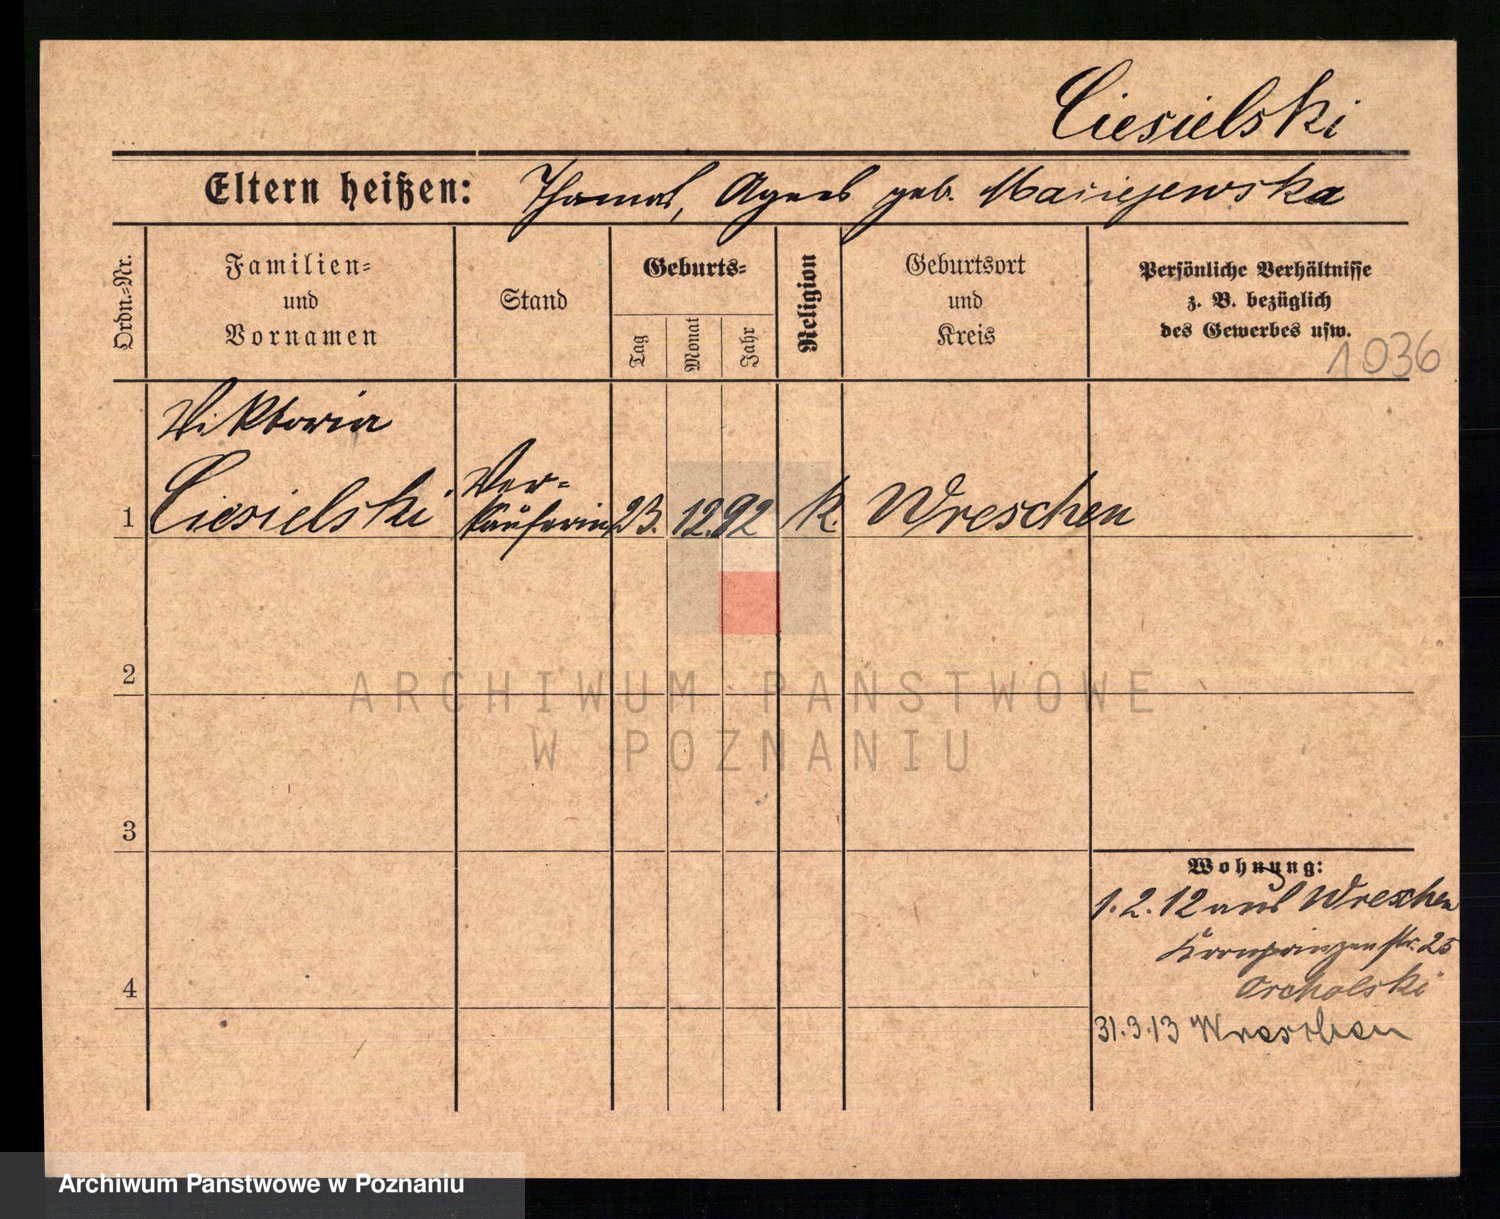 Ciesielski
Eltern heißen: Thomas, Agnes geb. Maciejewska
Ordn.-Nr.
Familien-
und
Vornamen
Stand
Geburts-
Tag
Monat
Jahr
Religion
Geburtsort
und
Kreis
Persönliche Verhältnisse
z. B. bezüglich
des Gewerbes usw.
1036
Viktoria
1 Ciesielski Ver-
käuferin 23. 12. 92 K. Wreschen
2
ARCHIWUM PAŃSTWOWE
W POZNANIU
3
Wohnung:
1.2.12 aus Wreschen
Kronprinzenstr. 25
4
31.3.13 Wreschen
Archiwum Państwowe w Poznaniu